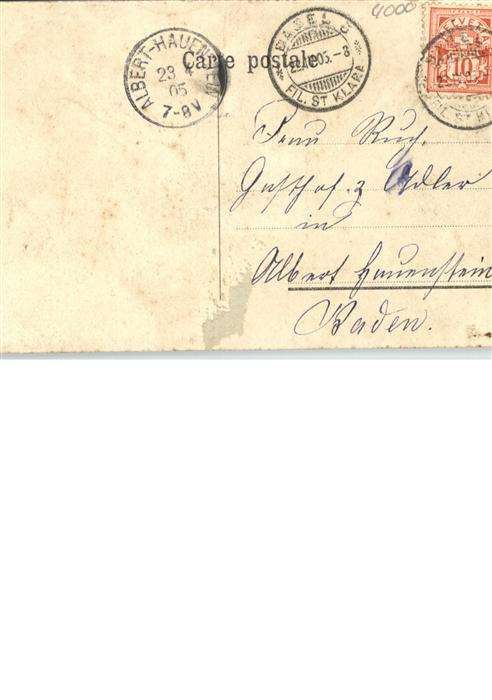 4000
Carte postale
ALBERT-HAUEN
23
4
05
7-8V
BASEL
05.-8
FIL. ST KLARA
HELVETIA
10
Frau Ruch.
Gasthof. z Adler
in
Albert Hauenstein
Baden.